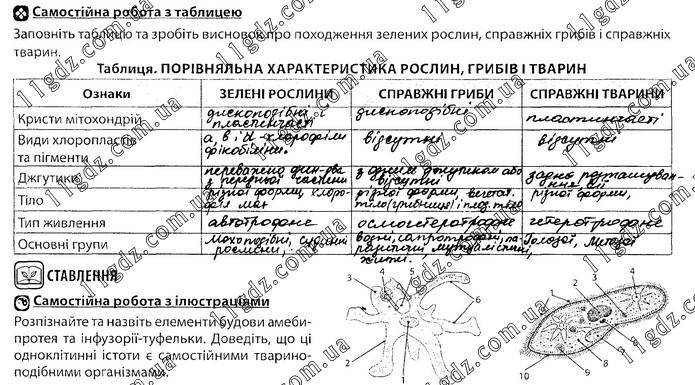 Самостійна робота з таблицею
Заповніть таблицю та зробіть висновок про походження зелених рослин, справжніх грибів і справжніх
тварин.
Таблиця. ПОРІВНЯЛЬНА ХАРАКТЕРИСТИКА РОСЛИН, ГРИБІВ І ТВАРИН
Ознаки ЗЕЛЕНІ РОСЛИНИ СПРАВЖНІ ГРИБИ СПРАВЖНІ ТВАРИНИ
Кристи мітохондрій дископодібні, пластинчасті дископодібні пластинчасті
Види хлоропластів та пігменти а, в і d-хлорофіли фікобіліни. відсутні відсутні
Джгутики переважно два з передньої частини з одним джгутиком або відсутні заднє розташування
Тіло різної форми, різної форми, різної форми,
Тип живлення автотрофне осмогетеротрофне гетеротрофне
Основні групи Мохоподібні, судинні рослини. сапротрофи,
СТАВЛЕННЯ
Самостійна робота з ілюстраціями
Розпізнайте та назвіть елементи будови амеби-
протея та інфузорії-туфельки. Доведіть, що ці
одноклітинні істоти є самостійними тварино-
подібними організмами.
3 4 5
6
2
1
1 2 3 4 5
6
7
8
9
10
11gdz.com.ua